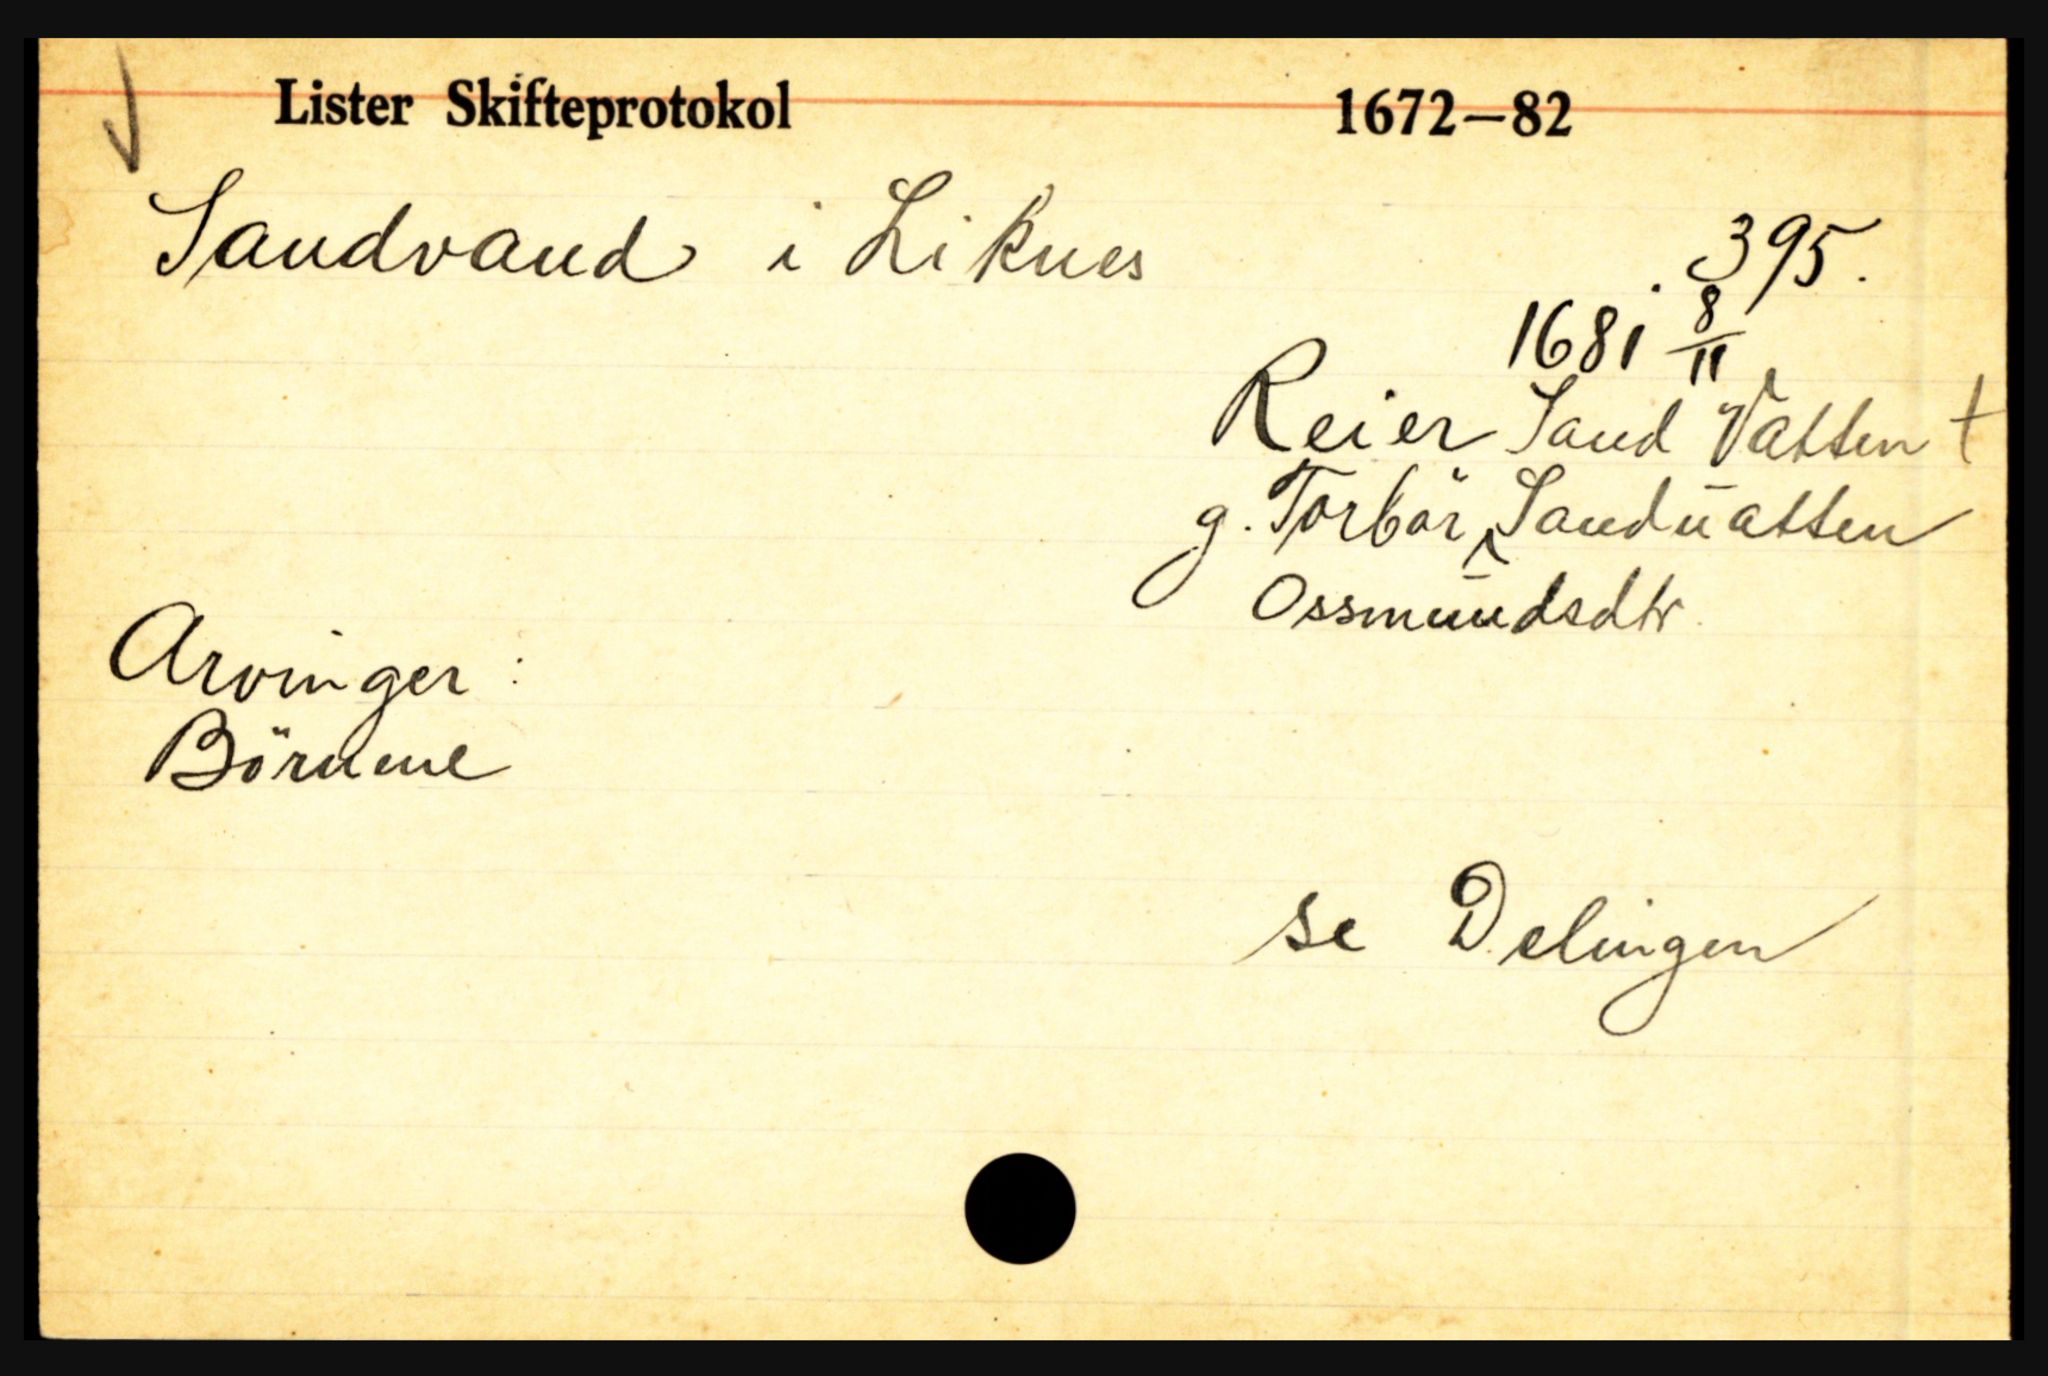 Lister Skifteprotokol 1672–82
Sandvand i Liknes
395.
1681 8/11
Reier Sand Vatten †
g. Torbör Sandŭatten
Ossmŭndsdtr.
Arvinger:
Börnene
se Delingen